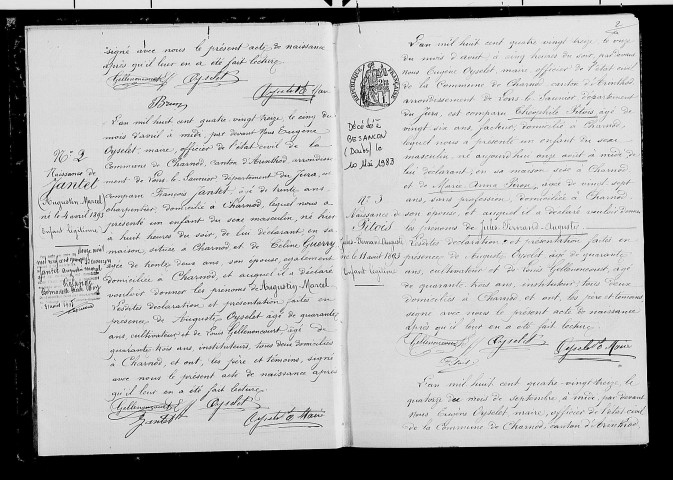 signé avec nous le présent acte de naissance
après qu'il leur en a été fait lecture
Gellenoncourt Oyselet
Oyselet E Maire
L'an mil huit cent quatre vingt treize, le cinq du
mois d'avril à midi, par devant Nous Eugène
Oyselet, maire, officier de l'état civil de la
Commune de Charnod, canton d'Arinthod, arrondisse-
ment de Lons le Saunier département du Jura, est
comparu François Jantet âgé de trente ans,
charpentier, domicilié à Charnod, lequel nous a
présenté un enfant du sexe masculin, né hier
à huit heures du soir, de lui déclarant, en sa
maison, située à Charnod et de Céline Guerry
âgée de trente deux ans, son épouse, également
domiciliée à Charnod, et auquel il a déclaré
vouloir donner les prénoms de Augustin Marcel
Lesdites déclaration et présentation faites en
présence de Auguste Oyselet âgé de quarante
ans, cultivateur et de Louis Gellenoncourt âgé de
quarante trois ans, instituteur, tous deux domiciliés
à Charnod, et ont, les père et témoins, signé
avec nous le présent acte de naissance après
qu'il leur en a été fait lecture
Gellenoncourt Oyselet
Jantet Oyselet E Maire
N° 2
Naissance de
Jantet
Augustin Marcel
né le 4 avril 1893
Enfant légitime
2
L'an mil huit cent quatre vingt treize le onze
du mois d'août, à cinq heures du soir, par devant
Nous Eugène Oyselet, maire officier de l'état civil
de la Commune de Charnod canton d'Arinthod
arrondissement de Lons le Saunier département
du Jura, est comparu Théophile Pilois, âgé de
vingt six ans, facteur, domicilié à Charnod,
lequel nous a présenté un enfant du sexe
masculin, né aujourd'hui onze août à midi de
lui déclarant, en sa maison sise à Charnod
et de Marie Anna Peron, âgée de vingt sept
ans, sans profession, domiciliée à Charnod,
son épouse, et auquel il a déclaré vouloir donner
les prénoms de Jules Fernand Auguste.
Lesdites déclaration et présentation faites en
présence de Auguste Oyselet âgé de quarante
ans, cultivateur et de Louis Gellenoncourt, âgé
de quarante trois ans, instituteur, tous deux
domiciliés à Charnod et ont, les père et témoins
signé avec nous le présent acte de naissance
après qu'il leur en a été fait lecture.
Gellenoncourt Oyselet
Oyselet E Maire
L'an mil huit cent quatre-vingt treize, le
quatorze du mois de septembre, à midi, par devant
Nous Eugène Oyselet, maire, officier de l'état civil
de la Commune de Charnod, canton d'Arinthod,
Décédé à
BESANCON
(Doubs) le
10 Mai 1983
N° 3
Naissance de
Pilois
Jules Fernand Auguste
né le 11 août 1893
Enfant légitime